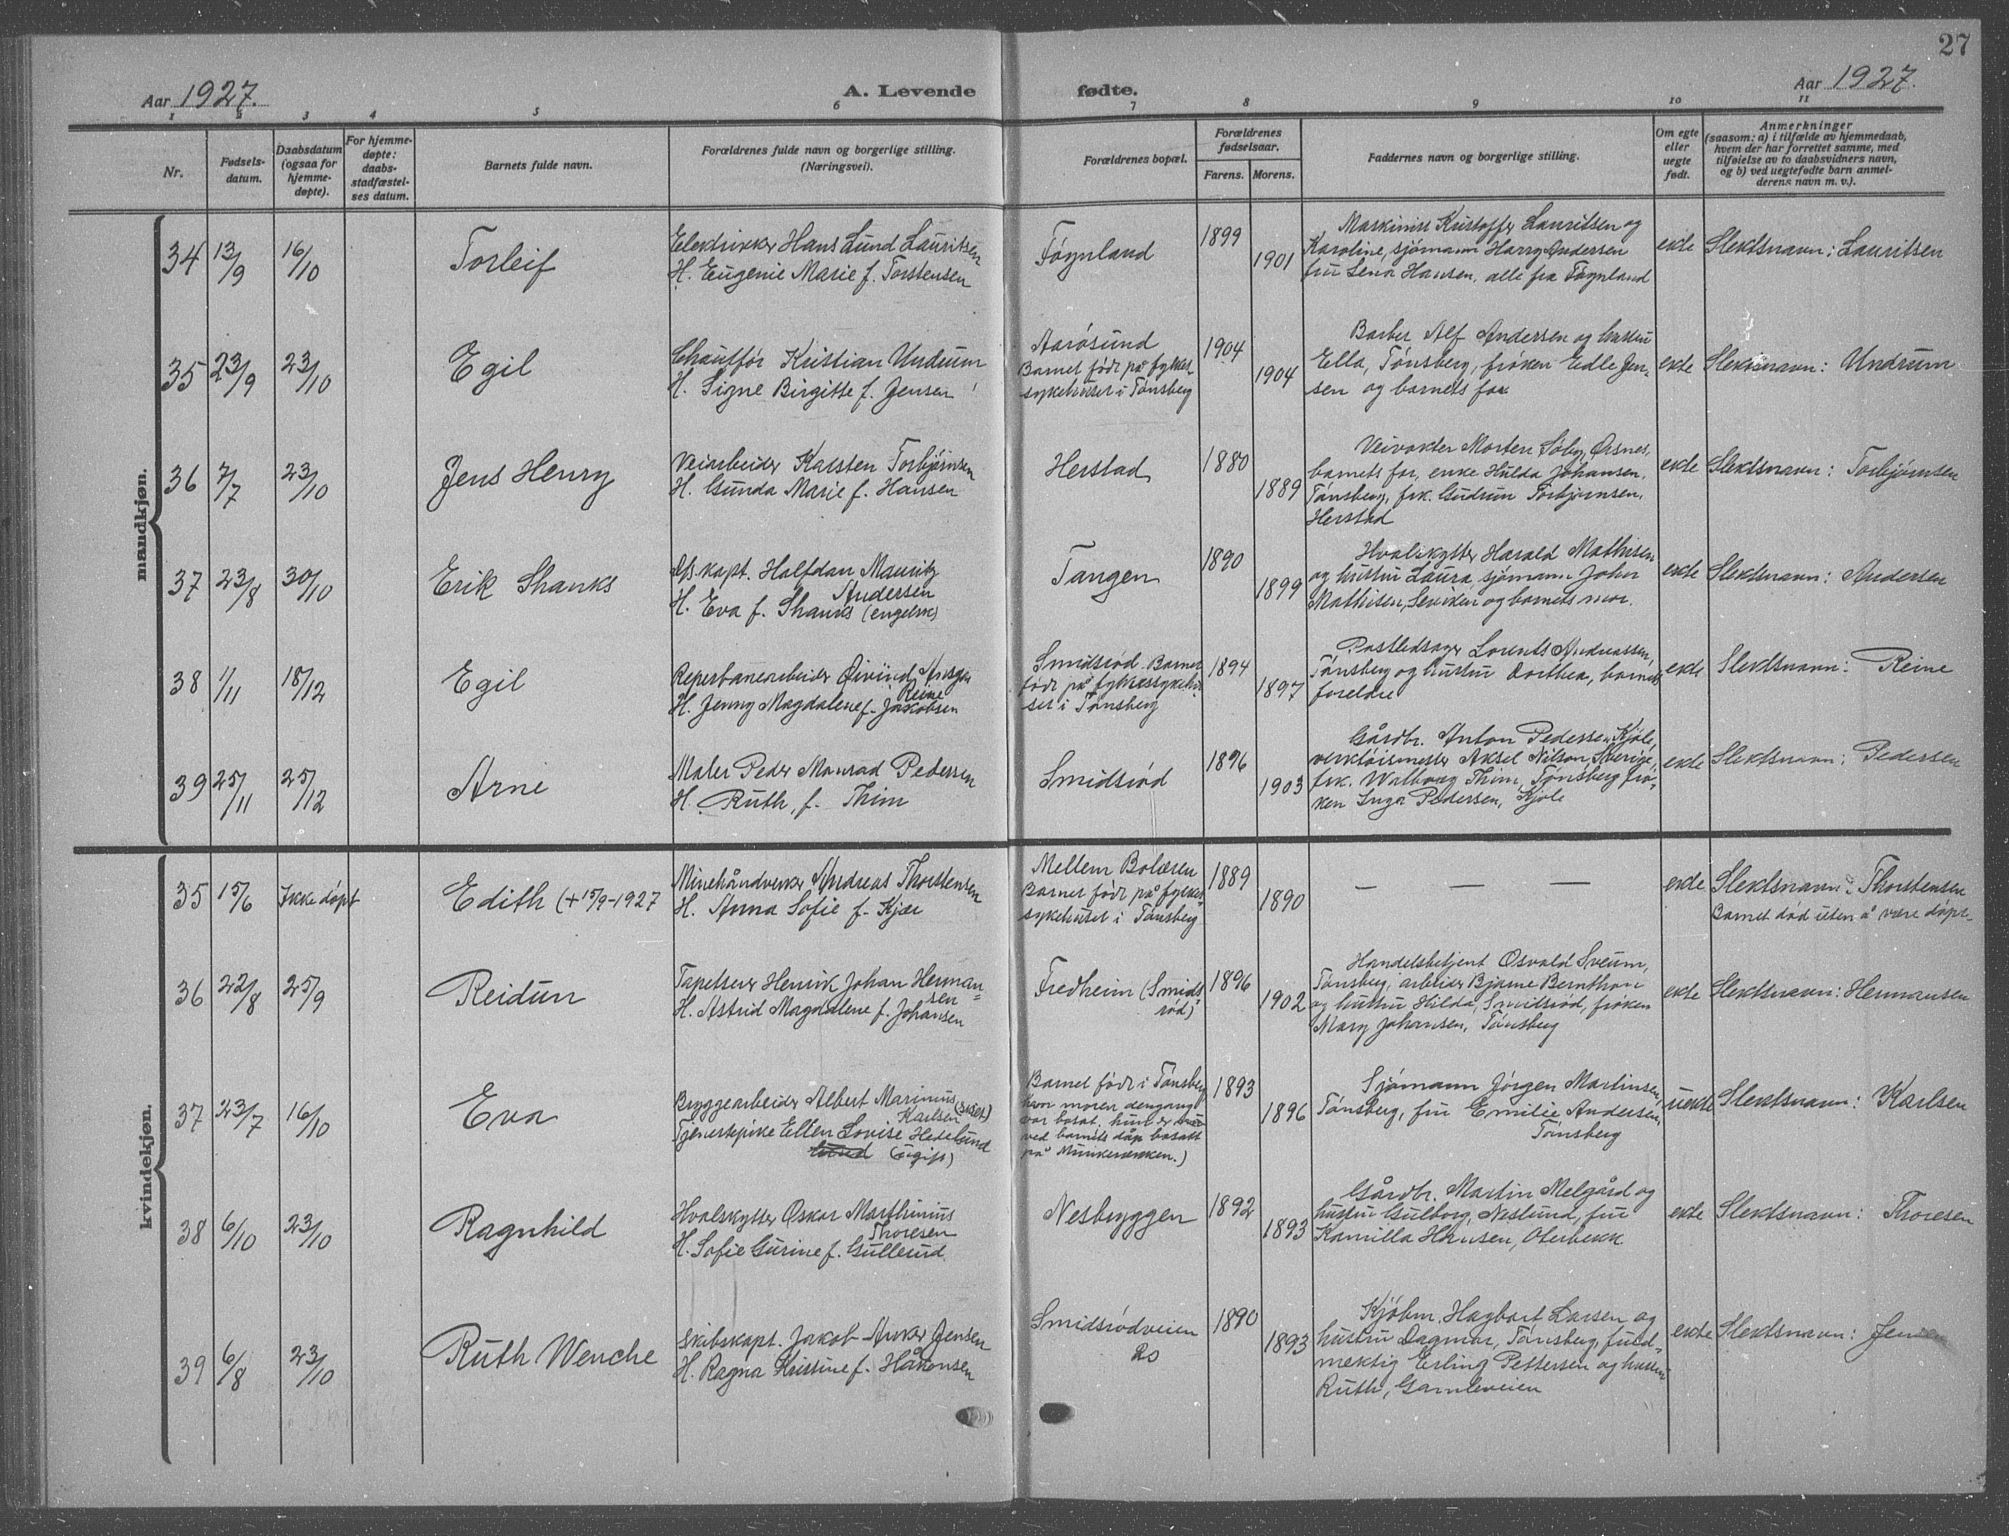 27
Aar 1927.
A. Levende fødte.
Aar 1927.
1 2 3 4 5 6 7 8 9 10 11
Nr.
Fødsels-
datum.
Daabsdatum
(ogsaa for
hjemme-
døpte).
For hjemme-
døpte:
daabs-
stadfæstel-
ses datum.
Barnets fulde navn.
Forældrenes fulde navn og borgerlige stilling.
(Næringsvei).
Forældrenes bopæl.
Forældrenes
fødselsaar.
Farens. Morens.
Faddernes navn og borgerlige stilling.
Om egte
eller
uegte
født.
Anmerkninger
(saasom: a) i tilfælde av hjemmedaab,
hvem der har forrettet samme, med
tilføielse av to daabsvidners navn,
og b) ved uegtefødte barn anmel-
derens navn m. v.).
mandkjøn.
34 13/9 16/10 Torleif
Elektriker Hans Lund Lauritsen
H. Eugenie Marie f. Torstensen
Tøgnland
1899
1901
Maskinist Kristoffer Lauritsen og
Karoline, sjømann Harry Andersen
fru Lena Hansen, alle fra Tøgnland
ekte
Slektsnavn: Lauritsen
35 23/9 23/10 Egil
Chauffør Kristian Undrum
H. Signe Birgitte f. Jensen
Aarøsund
Barnet født på fylkes-
sykehuset i Tønsberg
1904
1904
Barber Alf Andersen og hustru
Ella, Tønsberg, frøken Edle Jen-
sen og barnets far
ekte
Slektsnavn: Undrum
36 7/7 23/10 Jens Henry
Veiarbeider Karsten Torbjørnsen
H. Gunda Marie f. Hansen
Herstad
1880
1889
Veivokter Morten Søby, Øsnes,
barnets far, enke Hilda Johansen,
Tønsberg, frk. Gudrun Torbjørnsen,
Herstad
ekte
Slektsnavn: Torbjørnsen
37 23/8 30/10 Erik Shanks
kapt. Halfdan Mauritz
Andersen
H. Eva f. Shanks (engelsk)
Tangen
1890
1899
Hvalskytter Harald Mathisen
og hustru Laura, sjømann John
Mathisen, og barnets mor.
ekte
Slektsnavn: Andersen
38 1/11 18/12 Egil
Reperbanearbeider Øivind
Reine
H. Jenny Magdalene f. Jakobsen
Smidsrød. Barnet
født på fylkessykehu-
set i Tønsberg
1894
1897
Postledsager Lorents Andreassen,
Tønsberg og hustru Dorthea, barnets
foreldre
ekte
Slektsnavn: Reine
39 25/11 25/12 Arne
Maler Peder Monrad Pedersen
H. Ruth, f. Thim
Smidsrød
1896
1903
Gårdbr. Anton Pedersen, Kjøle,
verktøismester Aksel Nilson, Sverige,
frk. Walborg Thim, Tønsberg, frø-
ken Inga Pedersen, Kjøle
ekte
Slektsnavn: Pedersen
kvindekjøn.
35 15/6 Ikke døpt Edith (+15/9-1927
Minehåndverker Andreas Thorstensen
H. Anna Sofie f. Kjær
Mellem Bolæren
Barnet født på fylkes-
sykehuset i Tønsberg
1889
1890
— — —
ekte
Slektsnavn: Thorstensen
Barnet død uten å være døpt.
36 22/8 25/9 Reidun
Tapetserer Henrik Johan Herman-
sen
H. Astrid Magdalene f. Johansen
Fredheim (Smids-
rød)
1896
1902
Handelsbetjent Osvald Sveum,
Tønsberg, arbeider Bjarne Bernthon
og hustru Hilda, Smidsrød, frøken
Mary Johansen, Tønsberg
ekte
Slektsnavn: Hermansen
37 23/7 16/10 Eva
Bryggearbeider Albert Marinius
Karlsen
Tjenestepike Ellen Lovise Hedelund
lund (ugift)
Barnet født i Tønsberg
hvor moren dengang
var bosat. hun er
ved barnets dåp bosatt
på Munkerekken.)
1893
1896
Sjømann Jørgen Martinsen,
Tønsberg, fru Emilie Andersen,
Tønsberg
uekte
Slektsnavn: Karlsen
38 6/10 23/10 Ragnhild
Hvalskytter Oskar Marthinius
Thoresen
H. Sofie Gurine f. Gullerud
Nesbryggen
1892
1893
Gårdbr. Martin Melgård og
hustru Gulborg, Neslund, fru
Kamilla Hansen, Oterbekk
ekte
Slektsnavn: Thoresen
39 6/8 23/10 Ruth Wenche
Skibskapt. Jakob Anker Jensen
H. Ragna Kristine f. Håkonsen
Smidsrødveien
20
1890
1893
Kjøbm. Hagbart Larsen og
hustru Dagmar, Tønsberg, fuld-
mektig Erling Pettersen og hustru
Ruth, Gamleveien
ekte
Slektsnavn: Jensen